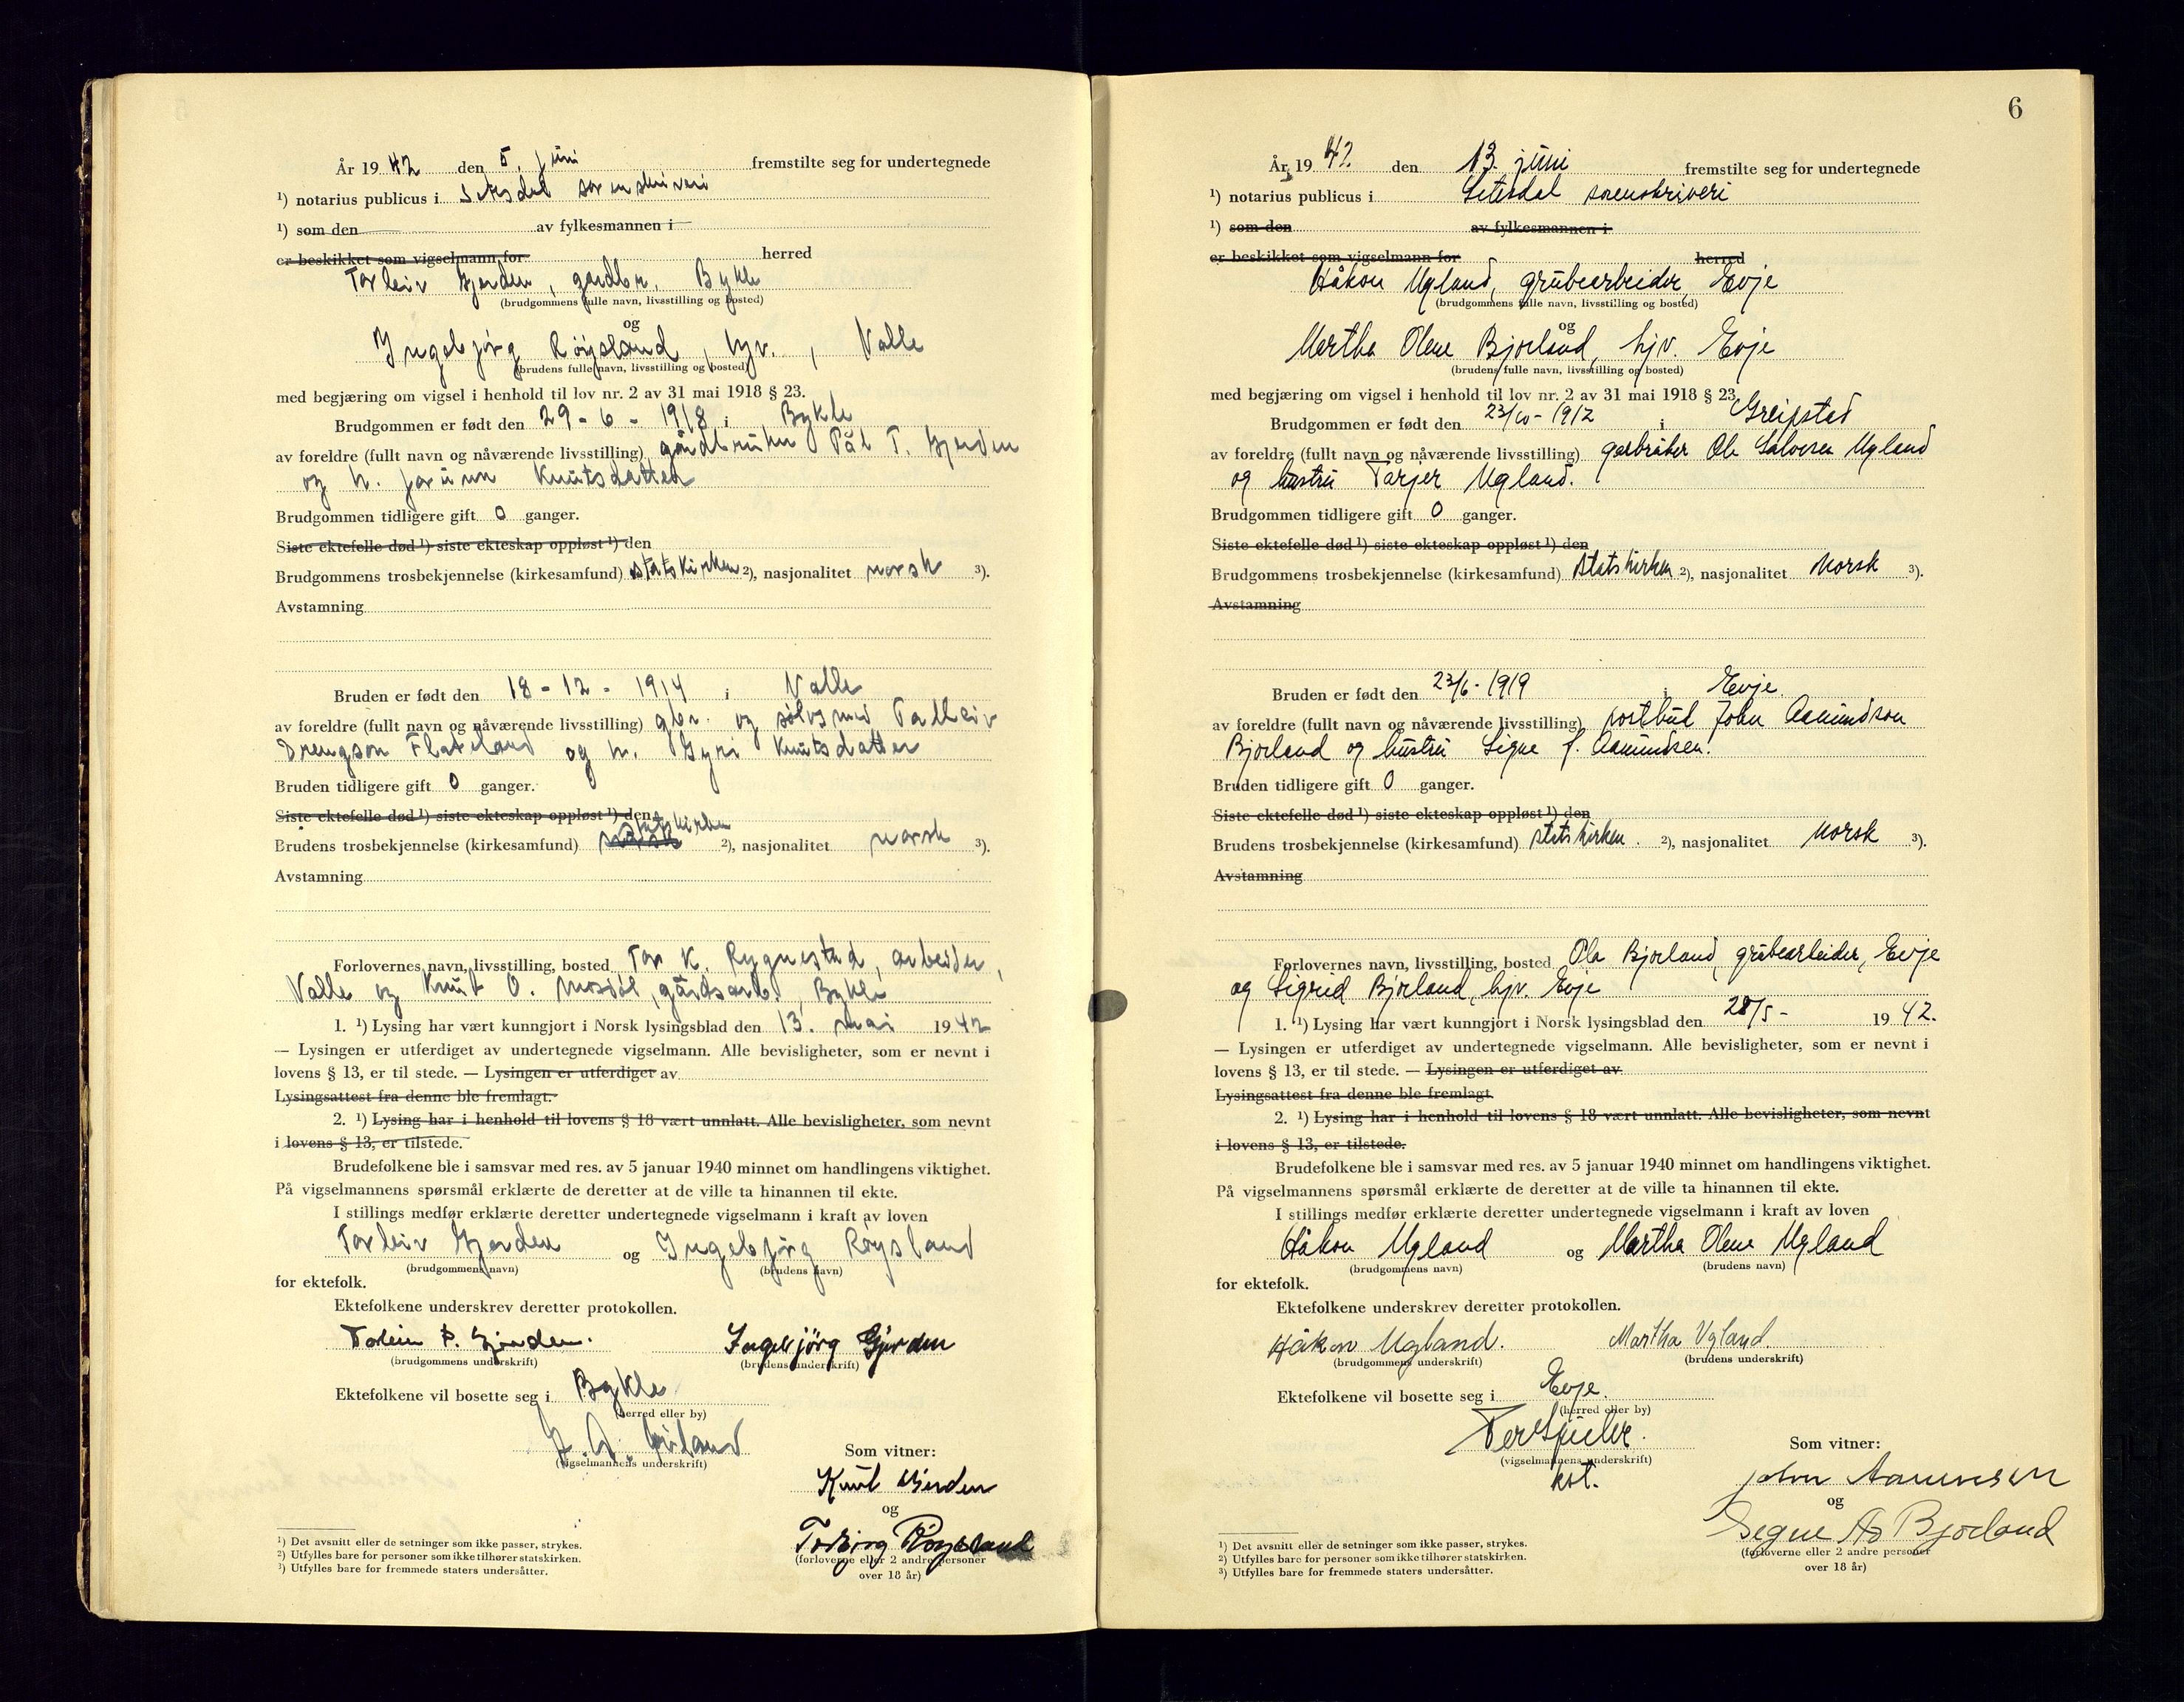 År 19 42 den 5. juni fremstilte seg for undertegnede
¹) notarius publicus i Setesdal sorenskriveri
¹) som den av fylkesmannen i
er beskikket som vigselmann for herred
Torleiv Gjerden, gardbr. Bykle
(brudgommens fulle navn, livsstilling og bosted)
og
Ingebjörg Röysland, hjv., Valle
(brudens fulle navn, livsstilling og bosted)
med begjæring om vigsel i henhold til lov nr. 2 av 31 mai 1918 § 23.
Brudgommen er født den 29 - 6 - 1918 i Bykle
av foreldre (fullt navn og nåværende livsstilling) gårdbruker Pål T. Gjerden
og h. Jorunn Knutsdatter
Brudgommen tidligere gift 0 ganger.
Siste ektefelle død ¹) siste ekteskap oppløst ¹) den
Brudgommens trosbekjennelse (kirkesamfund) statskirken ²), nasjonalitet norsk ³).
Avstamning
Bruden er født den 18 - 12 - 1914 i Valle
av foreldre (fullt navn og nåværende livsstilling) gbr. og sølvsmed Talleiv
Drengson Flateland og h. Gyri Knutsdatter
Bruden tidligere gift 0 ganger.
Siste ektefelle død ¹) siste ekteskap oppløst ¹) den
Brudens trosbekjennelse (kirkesamfund) norsk statskirken ²), nasjonalitet norsk ³).
Avstamning
Forlovernes navn, livsstilling, bosted Tor K. Rygnestad, arbeider,
Valle og Knut O. Mosdöl, gårdsarb., Bykle
1. ¹) Lysing har vært kunngjort i Norsk lysingsblad den 13. mai 19 42
— Lysingen er utferdiget av undertegnede vigselmann. Alle bevisligheter, som er nevnt i
lovens § 13, er til stede. — Lysingen er utferdiget av
Lysingsattest fra denne ble fremlagt.
2. ¹) Lysing har i henhold til lovens § 18 vært unnlatt. Alle bevisligheter, som nevnt
i lovens § 13, er tilstede.
Brudefolkene ble i samsvar med res. av 5 januar 1940 minnet om handlingens viktighet.
På vigselmannens spørsmål erklærte de deretter at de ville ta hinannen til ekte.
I stillings medfør erklærte deretter undertegnede vigselmann i kraft av loven
Torleiv Gjerden og Ingebjörg Röysland
(brudgommens navn) (brudens navn)
for ektefolk.
Ektefolkene underskrev deretter protokollen.
Torleiv P. Gjerden. Ingebjörg Gjerden
(brudgommens underskrift) (brudens underskrift)
Ektefolkene vil bosette seg i Bykle
(herred eller by)
(vigselmannens underskrift)
Som vitner:
Knut Gjerden
og
Torbjörg Röysland
(forloverne eller 2 andre personer
over 18 år)
¹) Det avsnitt eller de setninger som ikke passer, strykes.
²) Utfylles bare for personer som ikke tilhører statskirken.
³) Utfylles bare for fremmede staters undersåtter.
6
År 19 42 den 13. juni fremstilte seg for undertegnede
¹) notarius publicus i Setesdal sorenskriveri
¹) som den av fylkesmannen i
er beskikket som vigselmann for herred
Håkon Ugland, grubearbeider, Evje
(brudgommens fulle navn, livsstilling og bosted)
og
Martha Olene Bjorland, hjv. Evje
(brudens fulle navn, livsstilling og bosted)
med begjæring om vigsel i henhold til lov nr. 2 av 31 mai 1918 § 23.
Brudgommen er født den 23/10 - 1912 i Greipsted
av foreldre (fullt navn og nåværende livsstilling) garbruker Ole Salvesen Ugland
og hustru Tarjer Ugland.
Brudgommen tidligere gift 0 ganger.
Siste ektefelle død ¹) siste ekteskap oppløst ¹) den
Brudgommens trosbekjennelse (kirkesamfund) statskirken ²), nasjonalitet norsk ³).
Avstamning
Bruden er født den 23/6 - 1919 i Evje.
av foreldre (fullt navn og nåværende livsstilling) postbud John Aamundson
Bjorland og hustru Signe f. Aamundsen.
Bruden tidligere gift 0 ganger.
Siste ektefelle død ¹) siste ekteskap oppløst ¹) den
Brudens trosbekjennelse (kirkesamfund) statskirken. ²), nasjonalitet norsk ³).
Avstamning
Forlovernes navn, livsstilling, bosted Ola Bjorland, grubearbeider, Evje
og Sigrid Bjorland, hjv. Evje
1. ¹) Lysing har vært kunngjort i Norsk lysingsblad den 28/5 - 19 42.
— Lysingen er utferdiget av undertegnede vigselmann. Alle bevisligheter, som er nevnt i
lovens § 13, er til stede. — Lysingen er utferdiget av
Lysingsattest fra denne ble fremlagt.
2. ¹) Lysing har i henhold til lovens § 18 vært unnlatt. Alle bevisligheter, som nevnt
i lovens § 13, er tilstede.
Brudefolkene ble i samsvar med res. av 5 januar 1940 minnet om handlingens viktighet.
På vigselmannens spørsmål erklærte de deretter at de ville ta hinannen til ekte.
I stillings medfør erklærte deretter undertegnede vigselmann i kraft av loven
Håkon Ugland og Martha Olene Ugland
(brudgommens navn) (brudens navn)
for ektefolk.
Ektefolkene underskrev deretter protokollen.
Håkon Ugland. Martha Ugland.
(brudgommens underskrift) (brudens underskrift)
Ektefolkene vil bosette seg i Evje.
(herred eller by)
(vigselmannens underskrift)
kst.
Som vitner:
John Aamunsen
og
Segne Aa Bjorland
(forloverne eller 2 andre personer
over 18 år)
¹) Det avsnitt eller de setninger som ikke passer, strykes.
²) Utfylles bare for personer som ikke tilhører statskirken.
³) Utfylles bare for fremmede staters undersåtter.